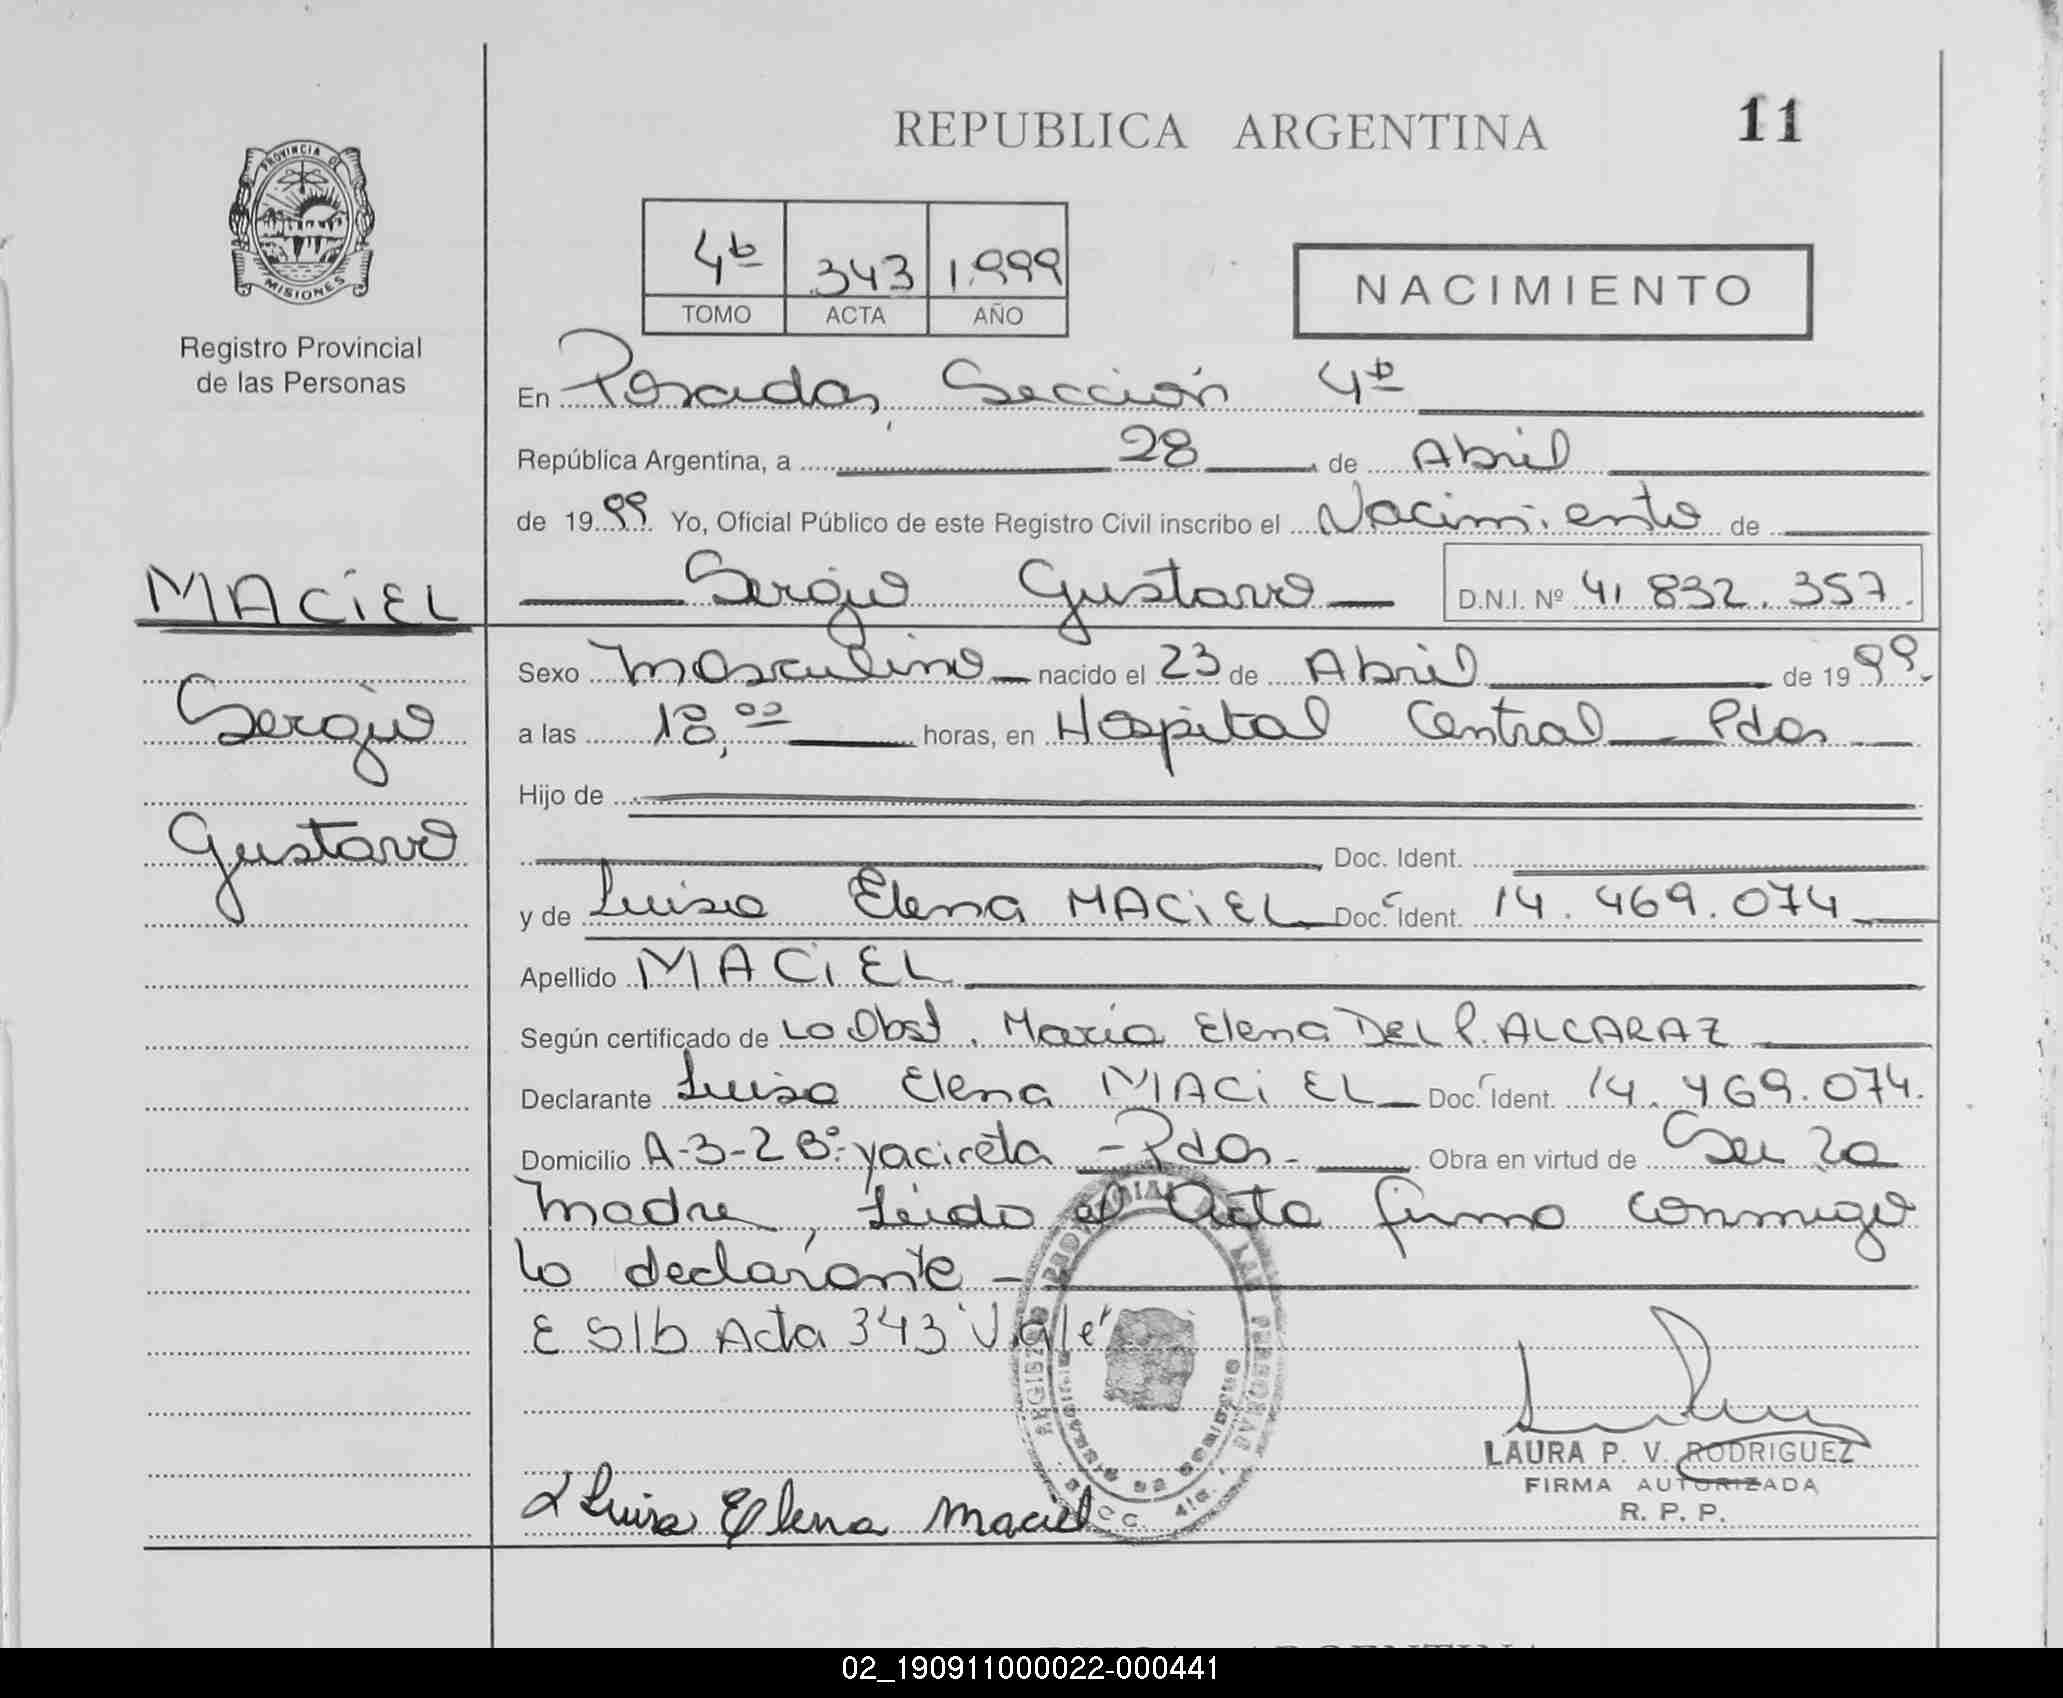 REPUBLICA ARGENTINA
11
PROVINCIA DE
MISIONES
Registro Provincial
de las Personas
4b 343 1.999
TOMO ACTA AÑO
NACIMIENTO
En Posadas, Sección 4b
República Argentina, a 28 de Abril
de 1999 Yo, Oficial Público de este Registro Civil inscribo el Nacimiento de
MACIEL
Sergio Gustavo D.N.I. Nº 41 832.357.
Sexo Masculino nacido el 23 de Abril de 1999.
Sergio
a las 18,00 horas, en Hospital Central Pdas
Hijo de
Gustavo
Doc. Ident.
y de Luisa Elena MACIEL Doc. Ident. 14.469.074
Apellido MACIEL
Según certificado de La Obst. María Elena DEL P. ALCARAZ
Declarante Luisa Elena MACIEL Doc. Ident. 14.469.074.
Domicilio A-3-2 Bº yacireta - Pdas - Obra en virtud de Ser la
madre, Leida el Acta firma conmigo
la declarante -
E S/b Acta 343 Vale
LAURA P. V. RODRIGUEZ
FIRMA AUTORIZADA
R. P. P.
Luisa Elena Maciel
02_190911000022-000441